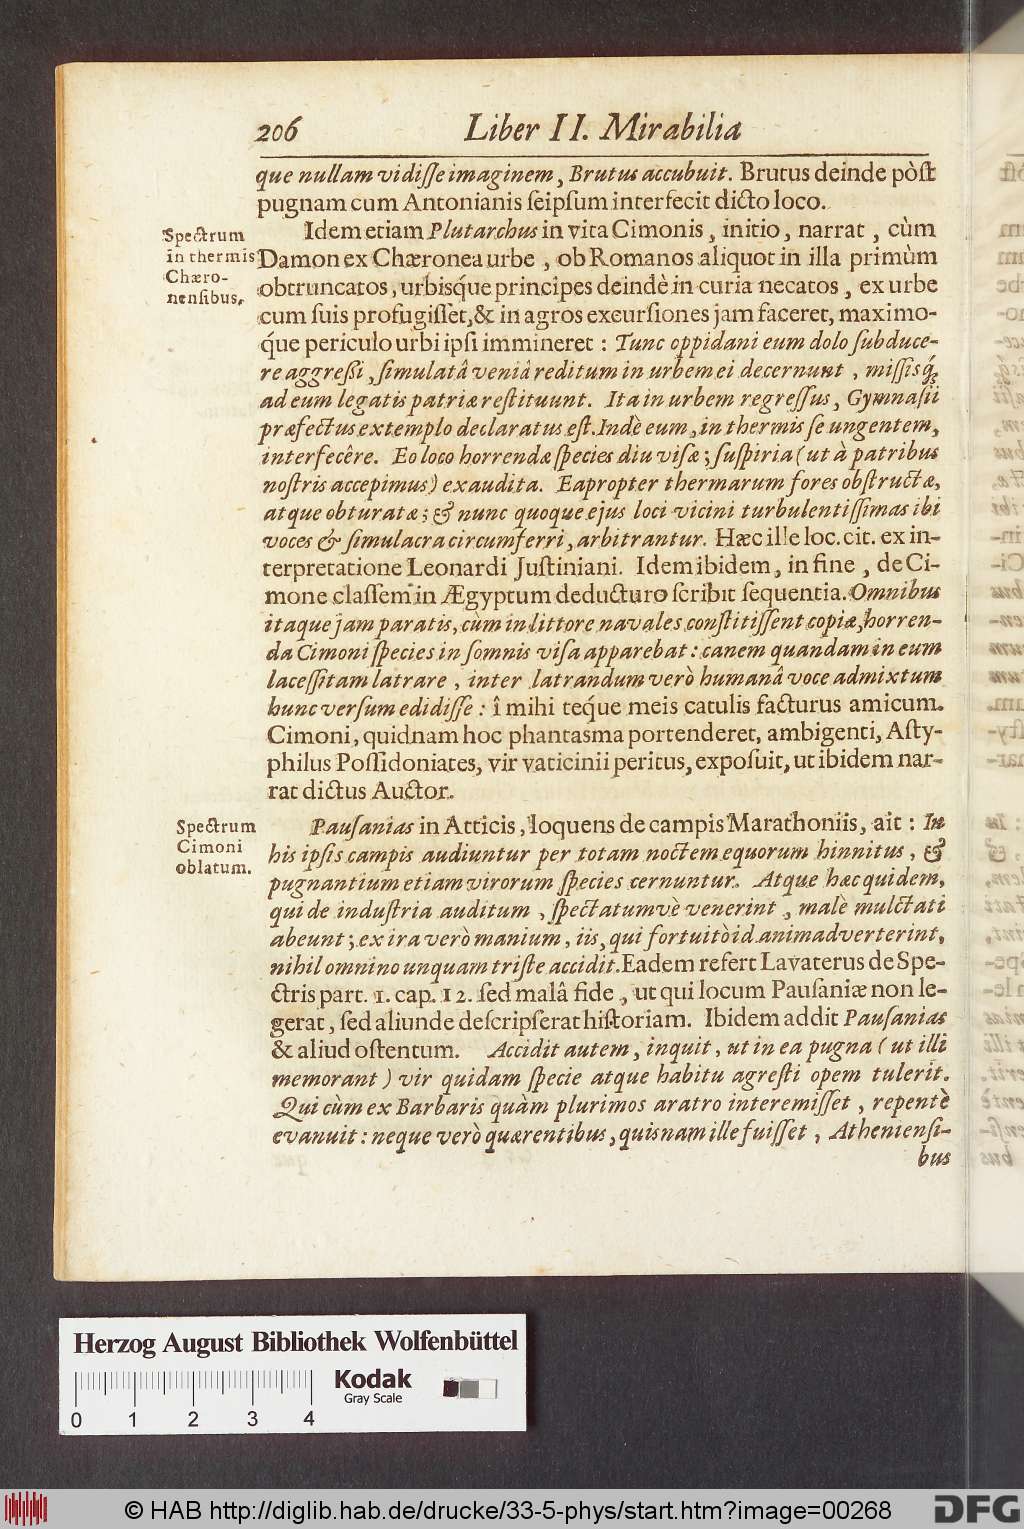 206 Liber II. Mirabilia
que nullam vidiſſe imaginem, Brutus accubuit. Brutus deinde pòſt
pugnam cum Antonianis ſeipſum interfecit dicto loco.
Spectrum
in thermis
Chæro-
nenſibus.
Idem etiam Plutarchus in vita Cimonis, initio, narrat, cùm
Damon ex Chæronea urbe, ob Romanos aliquot in illa primùm
obtruncatos, urbisq́ue principes deindè in curia necatos, ex urbe
cum ſuis profugiſſet, & in agros excurſiones jam faceret, maximo-
q́ue periculo urbi ipſi immineret: Tunc oppidani eum dolo ſubduce-
re aggreßi, ſimulatâ veniâ reditum in urbem ei decernunt, miſſisq́;
ad eum legatis patriæ reſtituunt. Ita in urbem regreſſus, Gymnaſii
præfectus extemplo declaratus eſt. Indè eum, in thermis ſe ungentem,
interfecêre. Eo loco horrendæ ſpecies diu viſæ; ſuſpiria (ut à patribus
noſtris accepimus) exaudita. Eapropter thermarum fores obſtructæ,
atque obturatæ; & nunc quoque ejus loci vicini turbulentiſſimas ibi
voces & ſimulacra circumferri, arbitrantur. Hæc ille loc. cit. ex in-
terpretatione Leonardi Juſtiniani. Idem ibidem, in fine, de Ci-
mone claſſem in Ægyptum deducturo ſcribit ſequentia. Omnibus
itaque jam paratis, cùm in littore navales conſtitiſſent copiæ, horren-
da Cimoni ſpecies in ſomnis viſa apparebat: canem quandam in eum
laceſſitam latrare, inter latrandum verò humanâ voce admixtum
hunc verſum edidiſſe: î mihi teq́ue meis catulis facturus amicum.
Cimoni, quidnam hoc phantasma portenderet, ambigenti, Aſty-
philus Poſſidoniates, vir vaticinii peritus, expoſuit, ut ibidem nar-
rat dictus Auctor.
Spectrum
Cimoni
oblatum.
Pauſanias in Atticis, loquens de campis Marathoniis, ait: In
his ipſis campis audiuntur per totam noctem equorum hinnitus, &
pugnantium etiam virorum ſpecies cernuntur. Atque hæc quidem,
qui de induſtria auditum, ſpectatumvè venerint, malè mulctati
abeunt; ex ira verò manium, iis, qui fortuitò id animadverterint,
nihil omnino unquam triſte accidit. Eadem refert Lavaterus de Spe-
ctris part. 1. cap. 12. ſed malâ fide, ut qui locum Pauſaniæ non le-
gerat, ſed aliunde deſcripſerat hiſtoriam. Ibidem addit Pauſanias
& aliud oſtentum. Accidit autem, inquit, ut in ea pugna (ut illi
memorant) vir quidam ſpecie atque habitu agreſti opem tulerit.
Qui cùm ex Barbaris quàm plurimos aratro interemiſſet, repentè
evanuit: neque verò quærentibus, quisnam ille fuiſſet, Athenienſi-
bus
Herzog August Bibliothek Wolfenbüttel
Kodak
Gray Scale
0 1 2 3 4
© HAB http://diglib.hab.de/drucke/33-5-phys/start.htm?image=00268
DFG